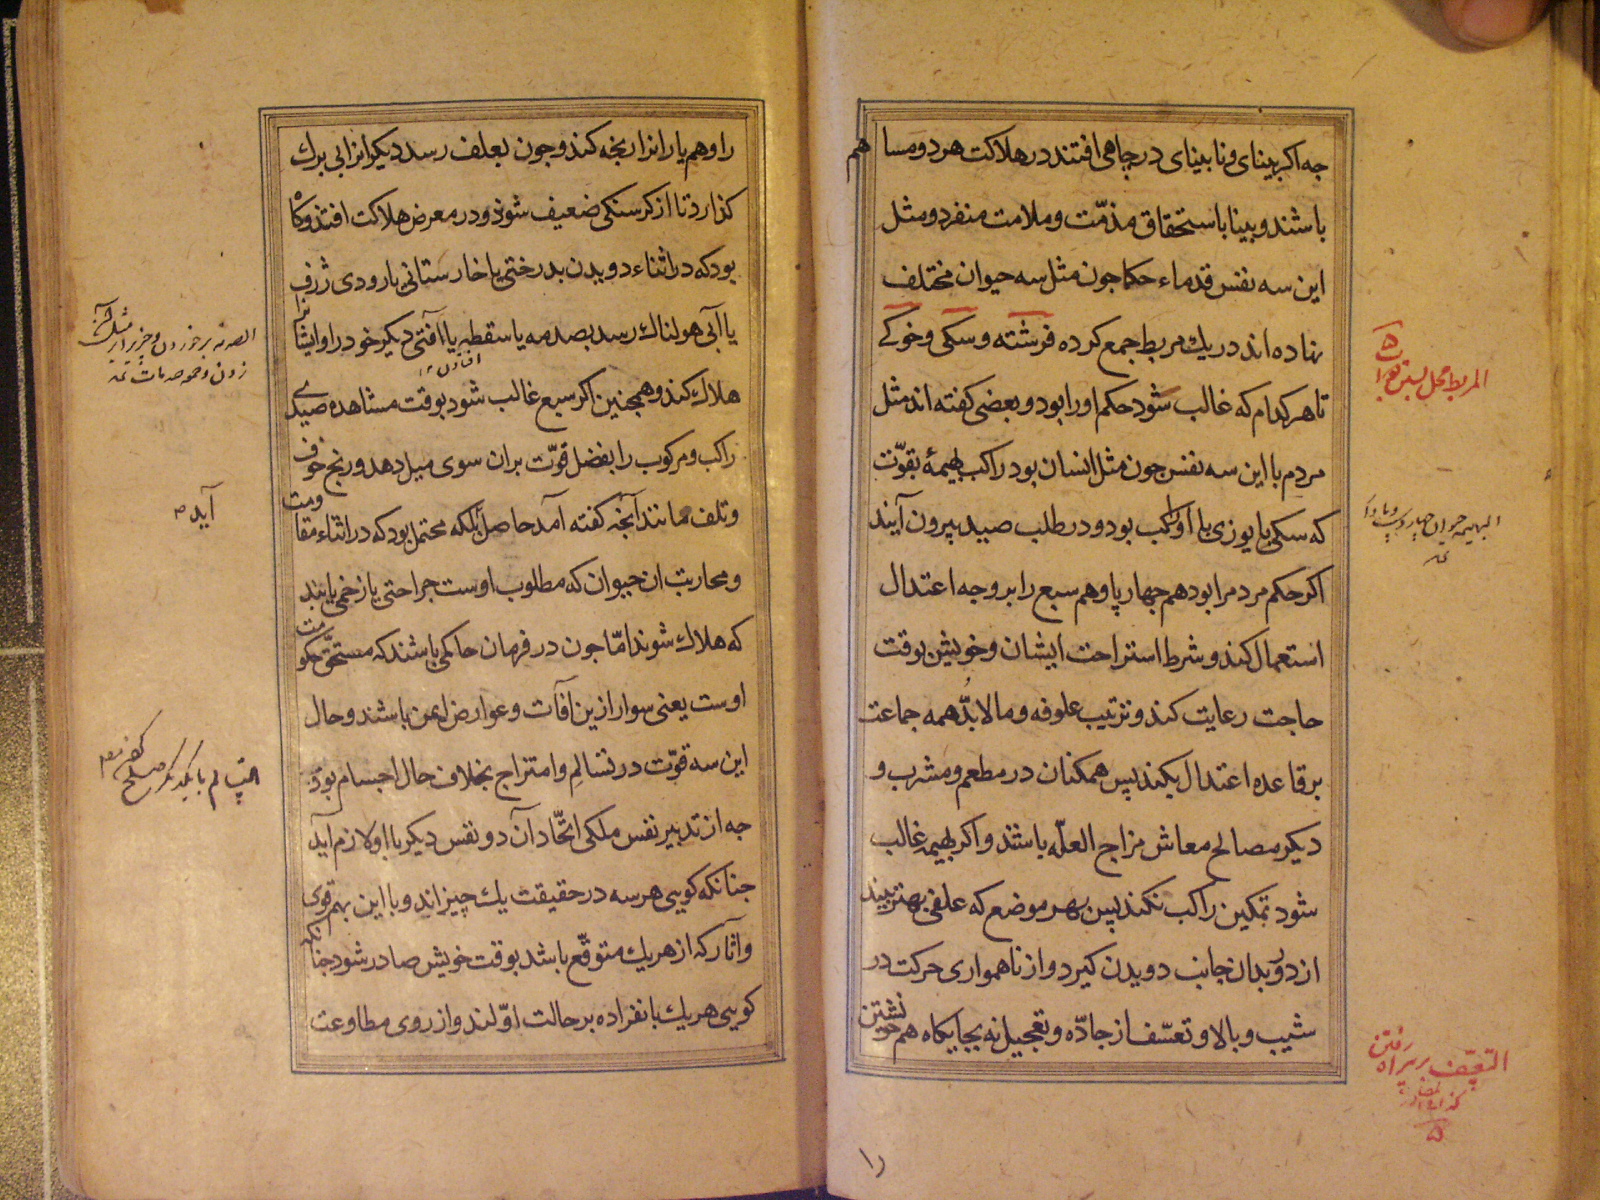 جه اکر بینای و نابینای در چاهی افتند در هلاکت هر دو مسا هم
باشند و بینا باستحقاق مذمّت و ملامت منفرد و مثل
این سه نفس قدماء حکما جون مثل سه حیوان مختلف
نهاده اند در یك مربط جمع کرده فرشته و سکی و خوکی
تا هر کدام که غالب شود حکم اورا بود و بعضی کفته اند مثل
مردم با این سه نفس جون مثل انسان بود راکب بهیمهٔ بقوّت
که سکی یا یوزی با او راکب بود و در طلب صید بیرون آیند
اکر حکم مردم را بود هم جهارپا و هم سبع را بر وجه اعتدال
استعمال کند و شرط استراحت ایشان و خویش بوقت
حاجت رعایت کند و ترتیب علوفه و ما لا بُدّ همه جماعت
بر قاعده اعتدال بکند پس همکنان در مطعم و مشرب و
دیکر مصالح معاش مزاج العلّه باشند و اکر بهیمه غالب
شود تمکین راکب نکند پس بهر موضع که علفی بهتر بیند
از دور بدان جانب دویدن کیرد و از ناهمواری حرکت در
شیب و بالا و تعسّف از جادّه و تعجیل نه بجایکاه هم خویشتن
المربط محل بستن
البهیمه حیوان چارپا
التعسّف بیراه رفتن
را
را و هم یارانرا رنجه کند و جون بعلف رسد دیکرانرا بی برك
کذارد تا از کرسنکی ضعیف شوند و در معرض هلاکت افتند و کاه
بود که در اثناء دویدن بدرختی یا خارستانی یا رودی ژرف
یا آبی هولناك رسد بصدمه یا سقطه یا آفتی دیکر خود را و ایشانرا
افتادن
هلاك کند و همچنین اکر سبع غالب شود بوقت مشاهده صیدی
راکب و مرکوب را بفضل قوّت بران سوی میل دهد و رنج خوف
و تلف مانند آنچه کفته آمد حاصل بلکه محتمل بود که در اثناء مقاومت
و محاربت ان حیوان که مطلوب اوست جراحتی یا زخمی یابند
که هلاك شوند امّا جون در فرمان حاکمی باشند که مستحقّ حکومت
اوست یعنی سوار ازین آفات و عوارض ایمن باشند و حال
این سه قوّت در تسالم و امتزاج بخلاف حال اجسام بود
جه از تدبیر نفس ملکی اتّحاد آن دو نفس دیکر با او لازم آید
جنانکه کویی هر سه در حقیقت یك چیز اند و با این بهم قوی
و آثار که از هر یك متوقّع باشد بوقت خویش صادر شود جنانکه
کویی هر یك بانفراده بر حالت اوّلند و از روی مطاوعت
آید
التسالم با یکدیکر صلح کردن